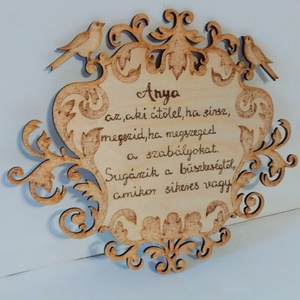 Anya
az, aki átölel, ha sírsz,
megszid, ha megszeged
a szabályokat.
Sugárzik a büszkeségtől,
amikor sikeres vagy.